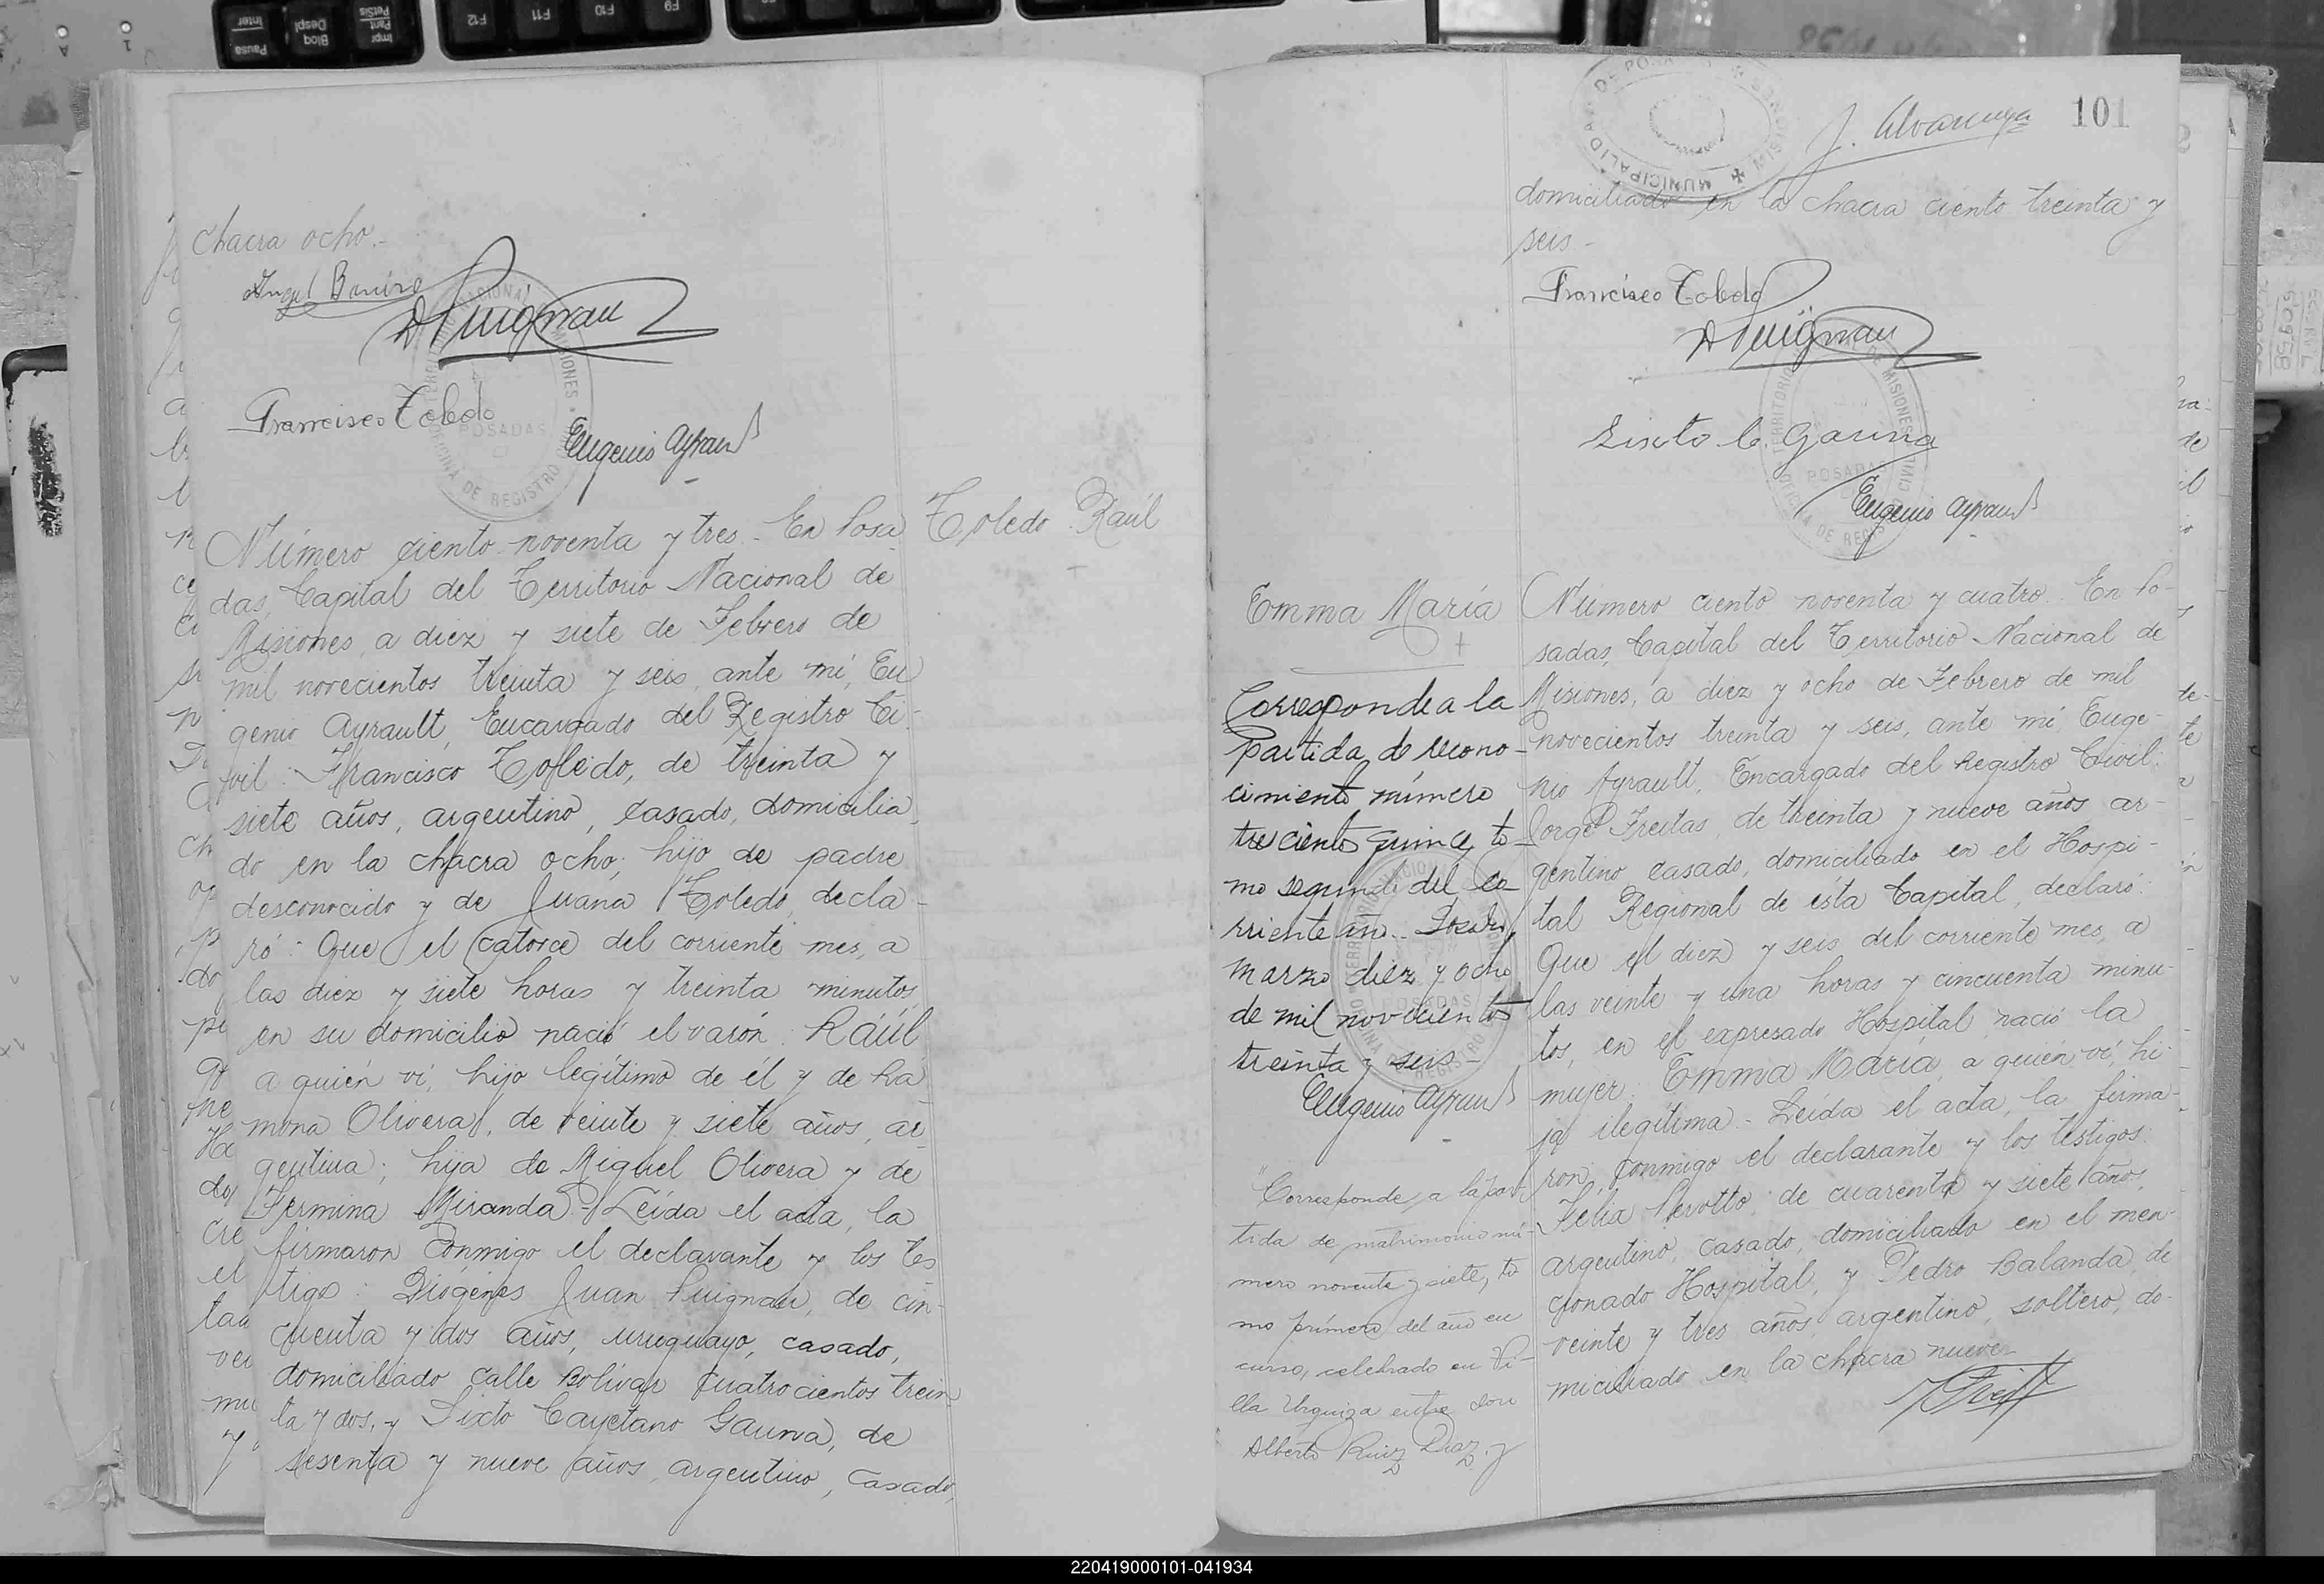 chacra ocho.-
Francisco Toledo
Eugenio Ayrault
Toledo Raúl
Número ciento noventa y tres.- En Posa
das, Capital del Territorio Nacional de
Misiones, a diez y siete de Febrero de
mil novecientos treinta y seis, ante mí, Eu
genio Ayrault, Encargado del Registro Ci-
vil: Francisco Toledo, de treinta y
siete años, argentino, casado, domicilia
do en la chacra ocho; hijo de padre
desconocido y de Juana Toledo, decla-
ró: Que el catorce del corriente mes, a
las diez y siete horas y treinta minutos,
en su domicilio nació el varón: Raúl
a quién ví, hijo legítimo de él y de Ra
mona Olivera, de veinte y siete años, ar
gentina; hija de Miguel Olivera y de
Fermina Miranda.- Leída el acta, la
firmaron conmigo el declarante y los tes
tigo: Diógenes Juan Puignau, de cin-
cuenta y dos años, uruguayo, casado,
domiciliado calle Bolívar cuatrocientos trein
ta y dos, y Sixto Cayetano Gauna, de
sesenta y nueve años, argentino, casado,
101
MUNICIPALIDAD DE POSADAS MISIONES
domiciliado en la chacra ciento treinta y
seis.-
Francisco Toledo
Sixto C. Gauna
TERRITORIO NACIONAL DE MISIONES
POSADAS
OFICINA DE REGISTRO CIVIL
Eugenio Ayrault
Emma María
Corresponde a la
partida de recono-
cimiento número
trescientos quince, to-
mo segundo del co-
rriente año.- Posadas,
marzo diez y ocho
de mil novecientos
treinta y seis.-
Eugenio Ayrault
"Corresponde a la par-
tida de matrimonio nú-
mero noventa y siete, to
mo primero del año en
curso, celebrado en Vi-
lla Urquiza entre don
Alberto Ruiz Diaz y
Número ciento noventa y cuatro.- En Po-
sadas, Capital del Territorio Nacional de
Misiones, a diez y ocho de Febrero de mil
novecientos treinta y seis, ante mí, Euge-
nio Ayrault, Encargado del Registro Civil:
Jorge Freitas, de treinta y nueve años, ar-
gentino, casado, domiciliado en el Hospi-
tal Regional de ésta Capital, declaró:
Que el diez y seis del corriente mes, a
las veinte y una horas y cincuenta minu-
tos, en el expresado Hospital nació la
mujer: Emma María, a quién ví, hi-
ja ilegítima.- Leída el acta, la firma-
ron conmigo el declarante y los testigos:
de cuarenta y siete años,
argentino, casado, domiciliado en el men-
cionado Hospital, y Pedro Balanda, de
veinte y tres años, argentino, soltero, do-
miciliado en la chacra nueve.-
220419000101-041934